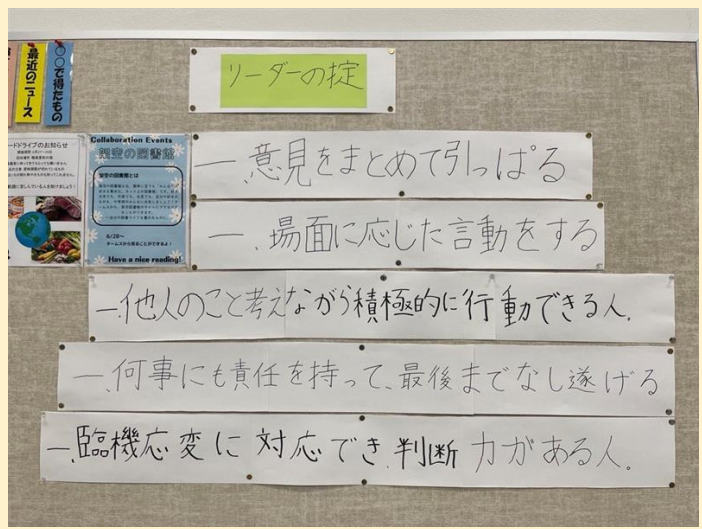 最近のニュース
〇〇で得たもの
リーダーの掟
ードドライブのお知らせ
Collaboration Events
架空の図書館
架空の図書館とは
6/28〜
チームスから見ることができるよ!
Have a nice reading!
一、意見をまとめて引っぱる
一、場面に応じた言動をする
一、他人のこと考えながら積極的に行動できる人。
一、何事にも責任を持って、最後までなし遂げる
一、臨機応変に対応でき、判断力がある人。